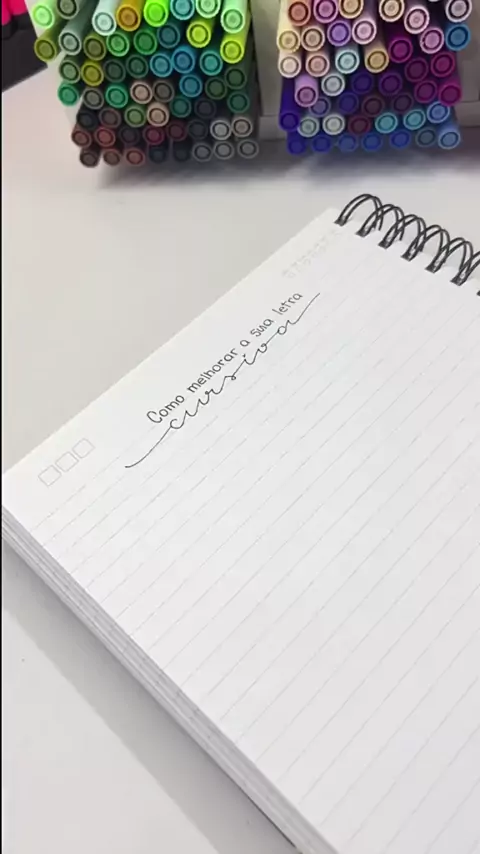 Como melhorar a sua letra
cursiva